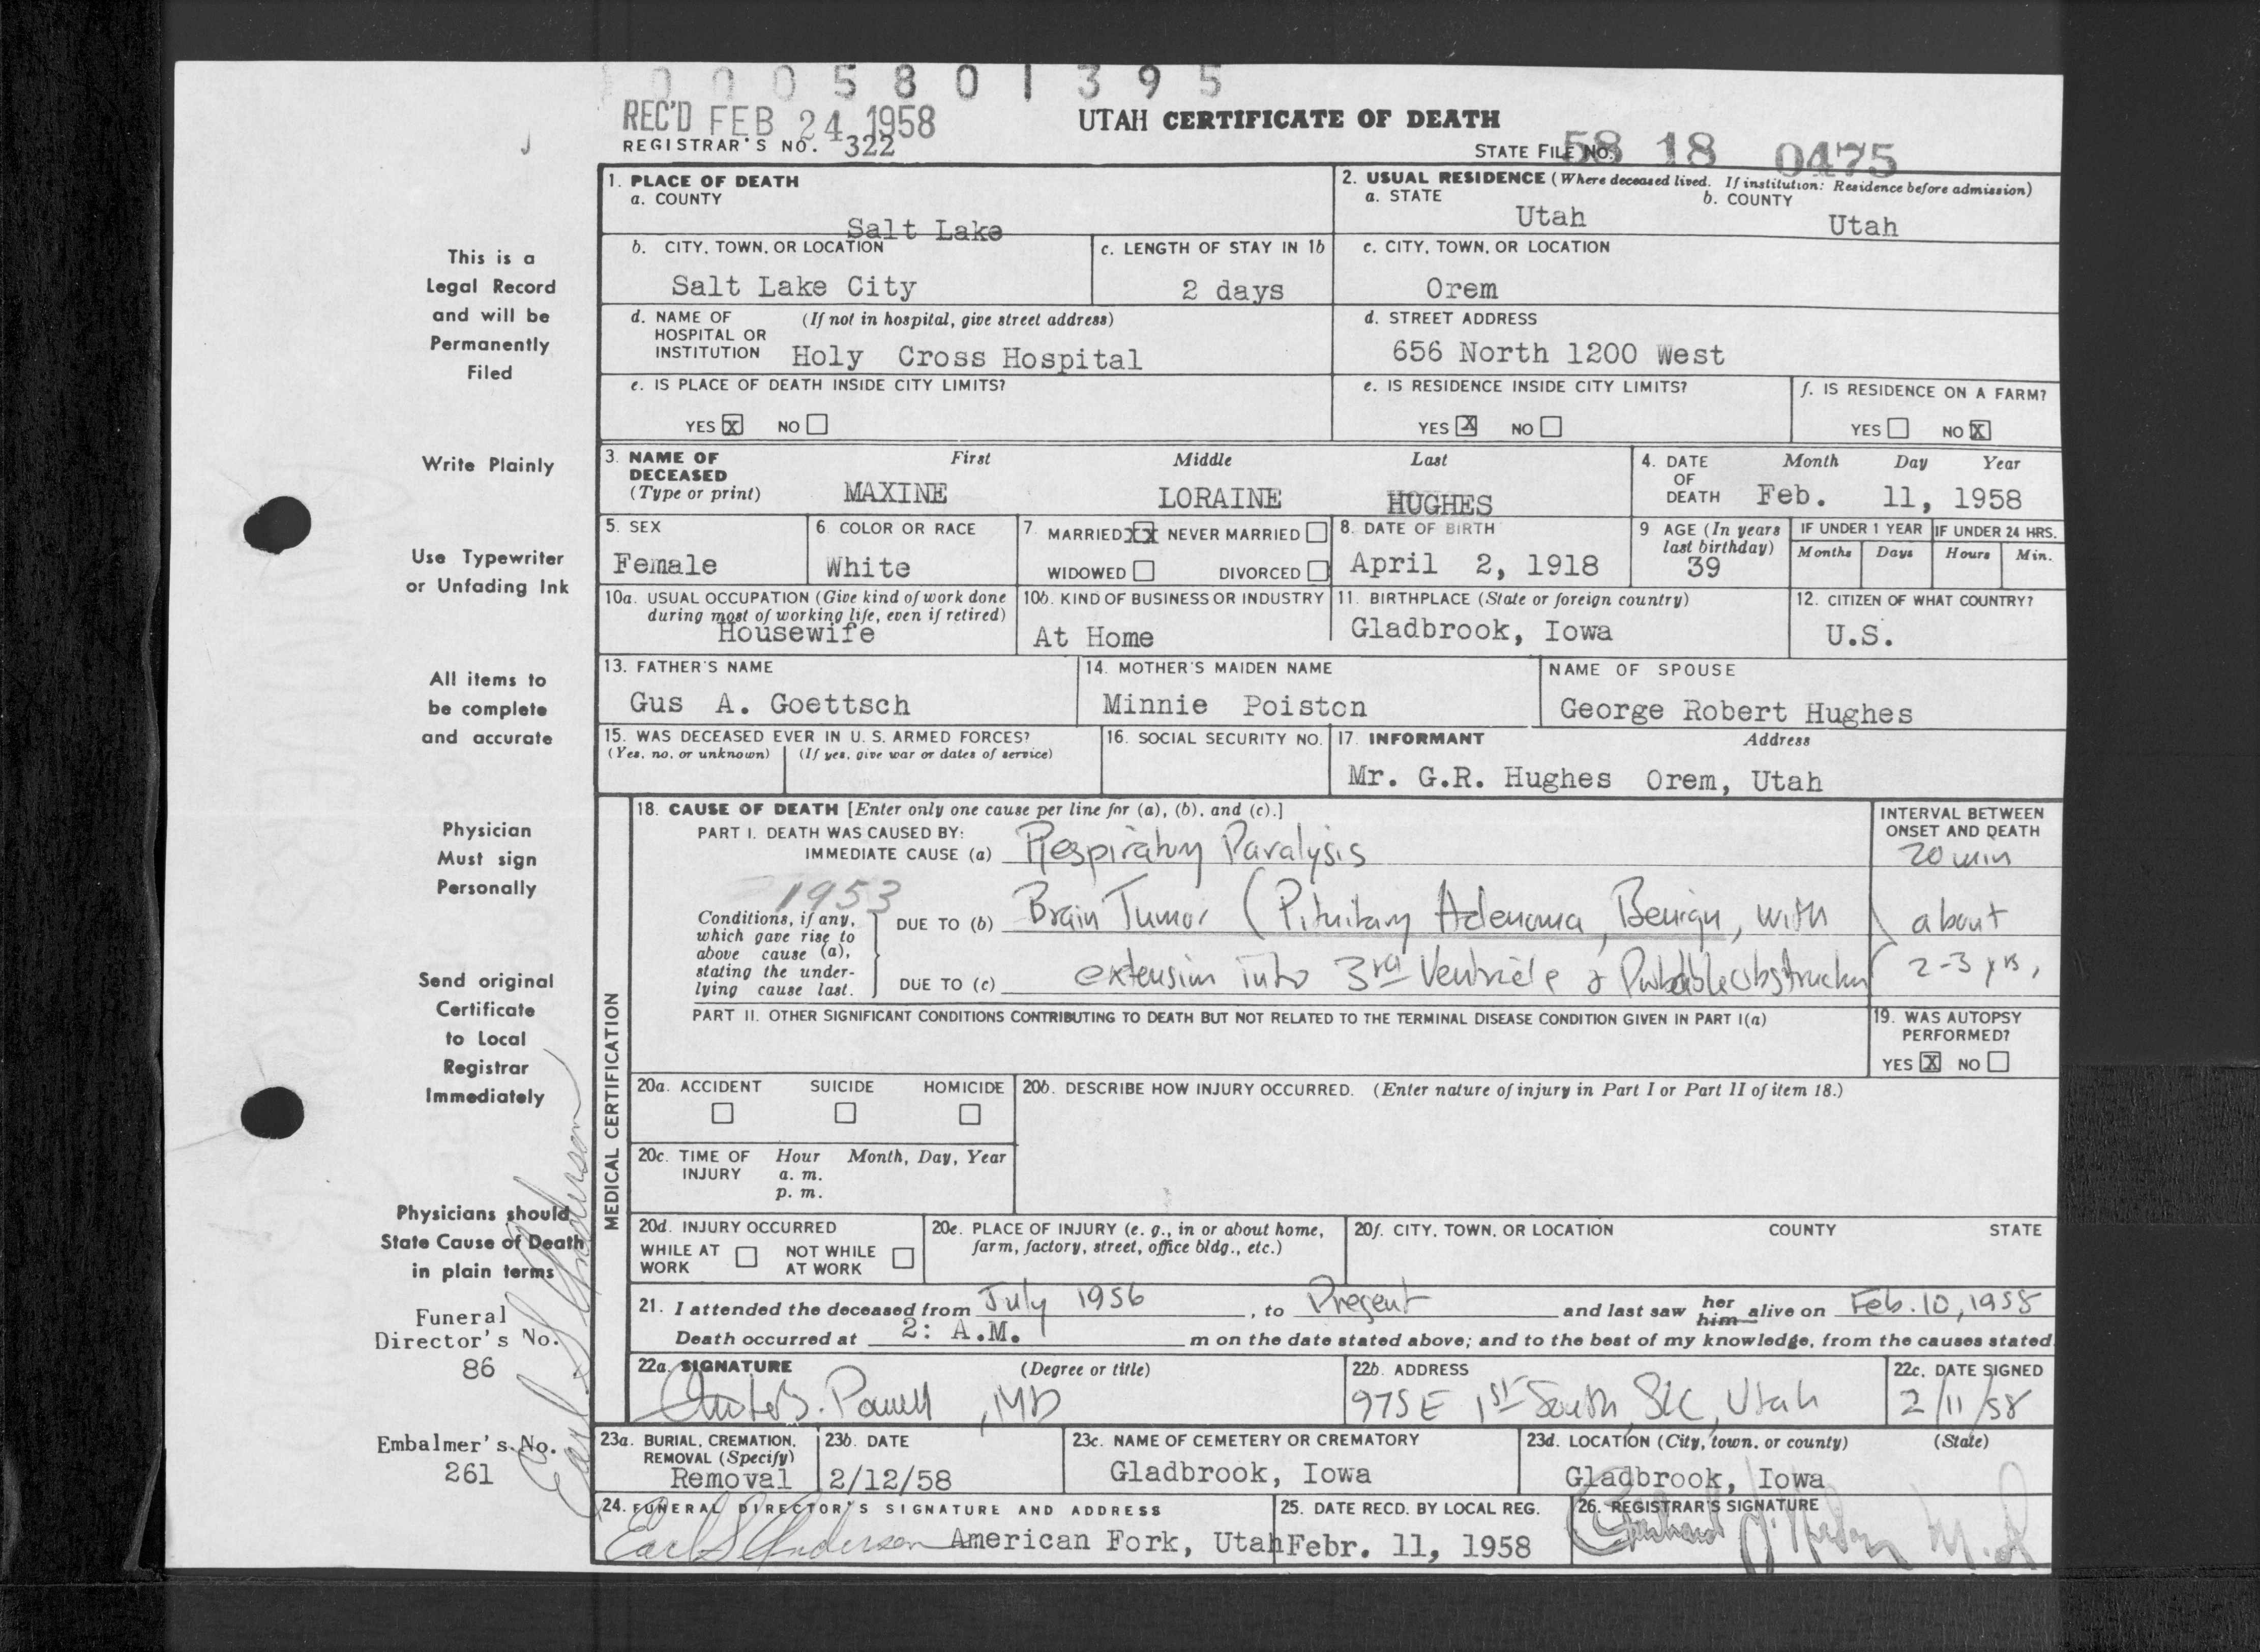 0 0 0 5 8 0 1 3 9 5
REC'D FEB 24 1958
UTAH CERTIFICATE OF DEATH
REGISTRAR'S NO. 322
STATE FILE NO. 58 18 0475
This is a
Legal Record
and will be
Permanently
Filed
Write Plainly
Use Typewriter
or Unfading Ink
All items to
be complete
and accurate
Physician
Must sign
Personally
Send original
Certificate
to Local
Registrar
Immediately
Physicians should
State Cause of Death
in plain terms
Funeral
Director's No.
86
Embalmer's No.
261
Earl S Anderson
1. PLACE OF DEATH
a. COUNTY
Salt Lake
2. USUAL RESIDENCE (Where deceased lived. If institution: Residence before admission)
a. STATE
Utah
b. COUNTY
Utah
b. CITY, TOWN, OR LOCATION
Salt Lake City
c. LENGTH OF STAY IN 1b
2 days
c. CITY, TOWN, OR LOCATION
Orem
d. NAME OF HOSPITAL OR INSTITUTION (If not in hospital, give street address)
Holy Cross Hospital
d. STREET ADDRESS
656 North 1200 West
e. IS PLACE OF DEATH INSIDE CITY LIMITS?
YES X NO
e. IS RESIDENCE INSIDE CITY LIMITS?
YES X NO
f. IS RESIDENCE ON A FARM?
YES NO X
3. NAME OF DECEASED (Type or print)
First Middle Last
MAXINE LORAINE HUGHES
4. DATE OF DEATH
Month Day Year
Feb. 11, 1958
5. SEX
Female
6. COLOR OR RACE
White
7. MARRIED XX NEVER MARRIED
WIDOWED DIVORCED
8. DATE OF BIRTH
April 2, 1918
9 AGE (In years last birthday)
39
IF UNDER 1 YEAR
Months Days
IF UNDER 24 HRS.
Hours Min.
10a. USUAL OCCUPATION (Give kind of work done during most of working life, even if retired)
Housewife
10b. KIND OF BUSINESS OR INDUSTRY
At Home
11. BIRTHPLACE (State or foreign country)
Gladbrook, Iowa
12. CITIZEN OF WHAT COUNTRY?
U.S.
13. FATHER'S NAME
Gus A. Goettsch
14. MOTHER'S MAIDEN NAME
Minnie Poiston
NAME OF SPOUSE
George Robert Hughes
15. WAS DECEASED EVER IN U. S. ARMED FORCES?
(Yes, no, or unknown) (If yes, give war or dates of service)
16. SOCIAL SECURITY NO.
17. INFORMANT Address
Mr. G.R. Hughes Orem, Utah
MEDICAL CERTIFICATION
18. CAUSE OF DEATH [Enter only one cause per line for (a), (b), and (c).]
PART I. DEATH WAS CAUSED BY:
IMMEDIATE CAUSE (a) Respiratory Paralysis
INTERVAL BETWEEN ONSET AND DEATH
20 min
1953
Conditions, if any, which gave rise to above cause (a), stating the underlying cause last.
DUE TO (b) Brain Tumor (Pituitary Adenoma, Benign, with
about
DUE TO (c) extension into 3rd Ventricle & Probable obstruction
2-3 yrs,
PART II. OTHER SIGNIFICANT CONDITIONS CONTRIBUTING TO DEATH BUT NOT RELATED TO THE TERMINAL DISEASE CONDITION GIVEN IN PART I(a)
19. WAS AUTOPSY PERFORMED?
YES X NO
20a. ACCIDENT SUICIDE HOMICIDE
20b. DESCRIBE HOW INJURY OCCURRED. (Enter nature of injury in Part I or Part II of item 18.)
20c. TIME OF INJURY
Hour Month, Day, Year
a. m.
p. m.
20d. INJURY OCCURRED
WHILE AT WORK NOT WHILE AT WORK
20e. PLACE OF INJURY (e. g., in or about home, farm, factory, street, office bldg., etc.)
20f. CITY, TOWN, OR LOCATION COUNTY STATE
21. I attended the deceased from July 1956, to Present and last saw her him alive on Feb. 10, 1958
Death occurred at 2: A.M. m on the date stated above; and to the best of my knowledge, from the causes stated
22a. SIGNATURE (Degree or title)
Powell, MD
22b. ADDRESS
975 E 1st South, SLC, Utah
22c. DATE SIGNED
2/11/58
23a. BURIAL, CREMATION, REMOVAL (Specify)
Removal
23b. DATE
2/12/58
23c. NAME OF CEMETERY OR CREMATORY
Gladbrook, Iowa
23d. LOCATION (City, town, or county) (State)
Gladbrook, Iowa
24. FUNERAL DIRECTOR'S SIGNATURE AND ADDRESS
Earl S Anderson American Fork, Utah
25. DATE RECD. BY LOCAL REG.
Febr. 11, 1958
26. REGISTRAR'S SIGNATURE